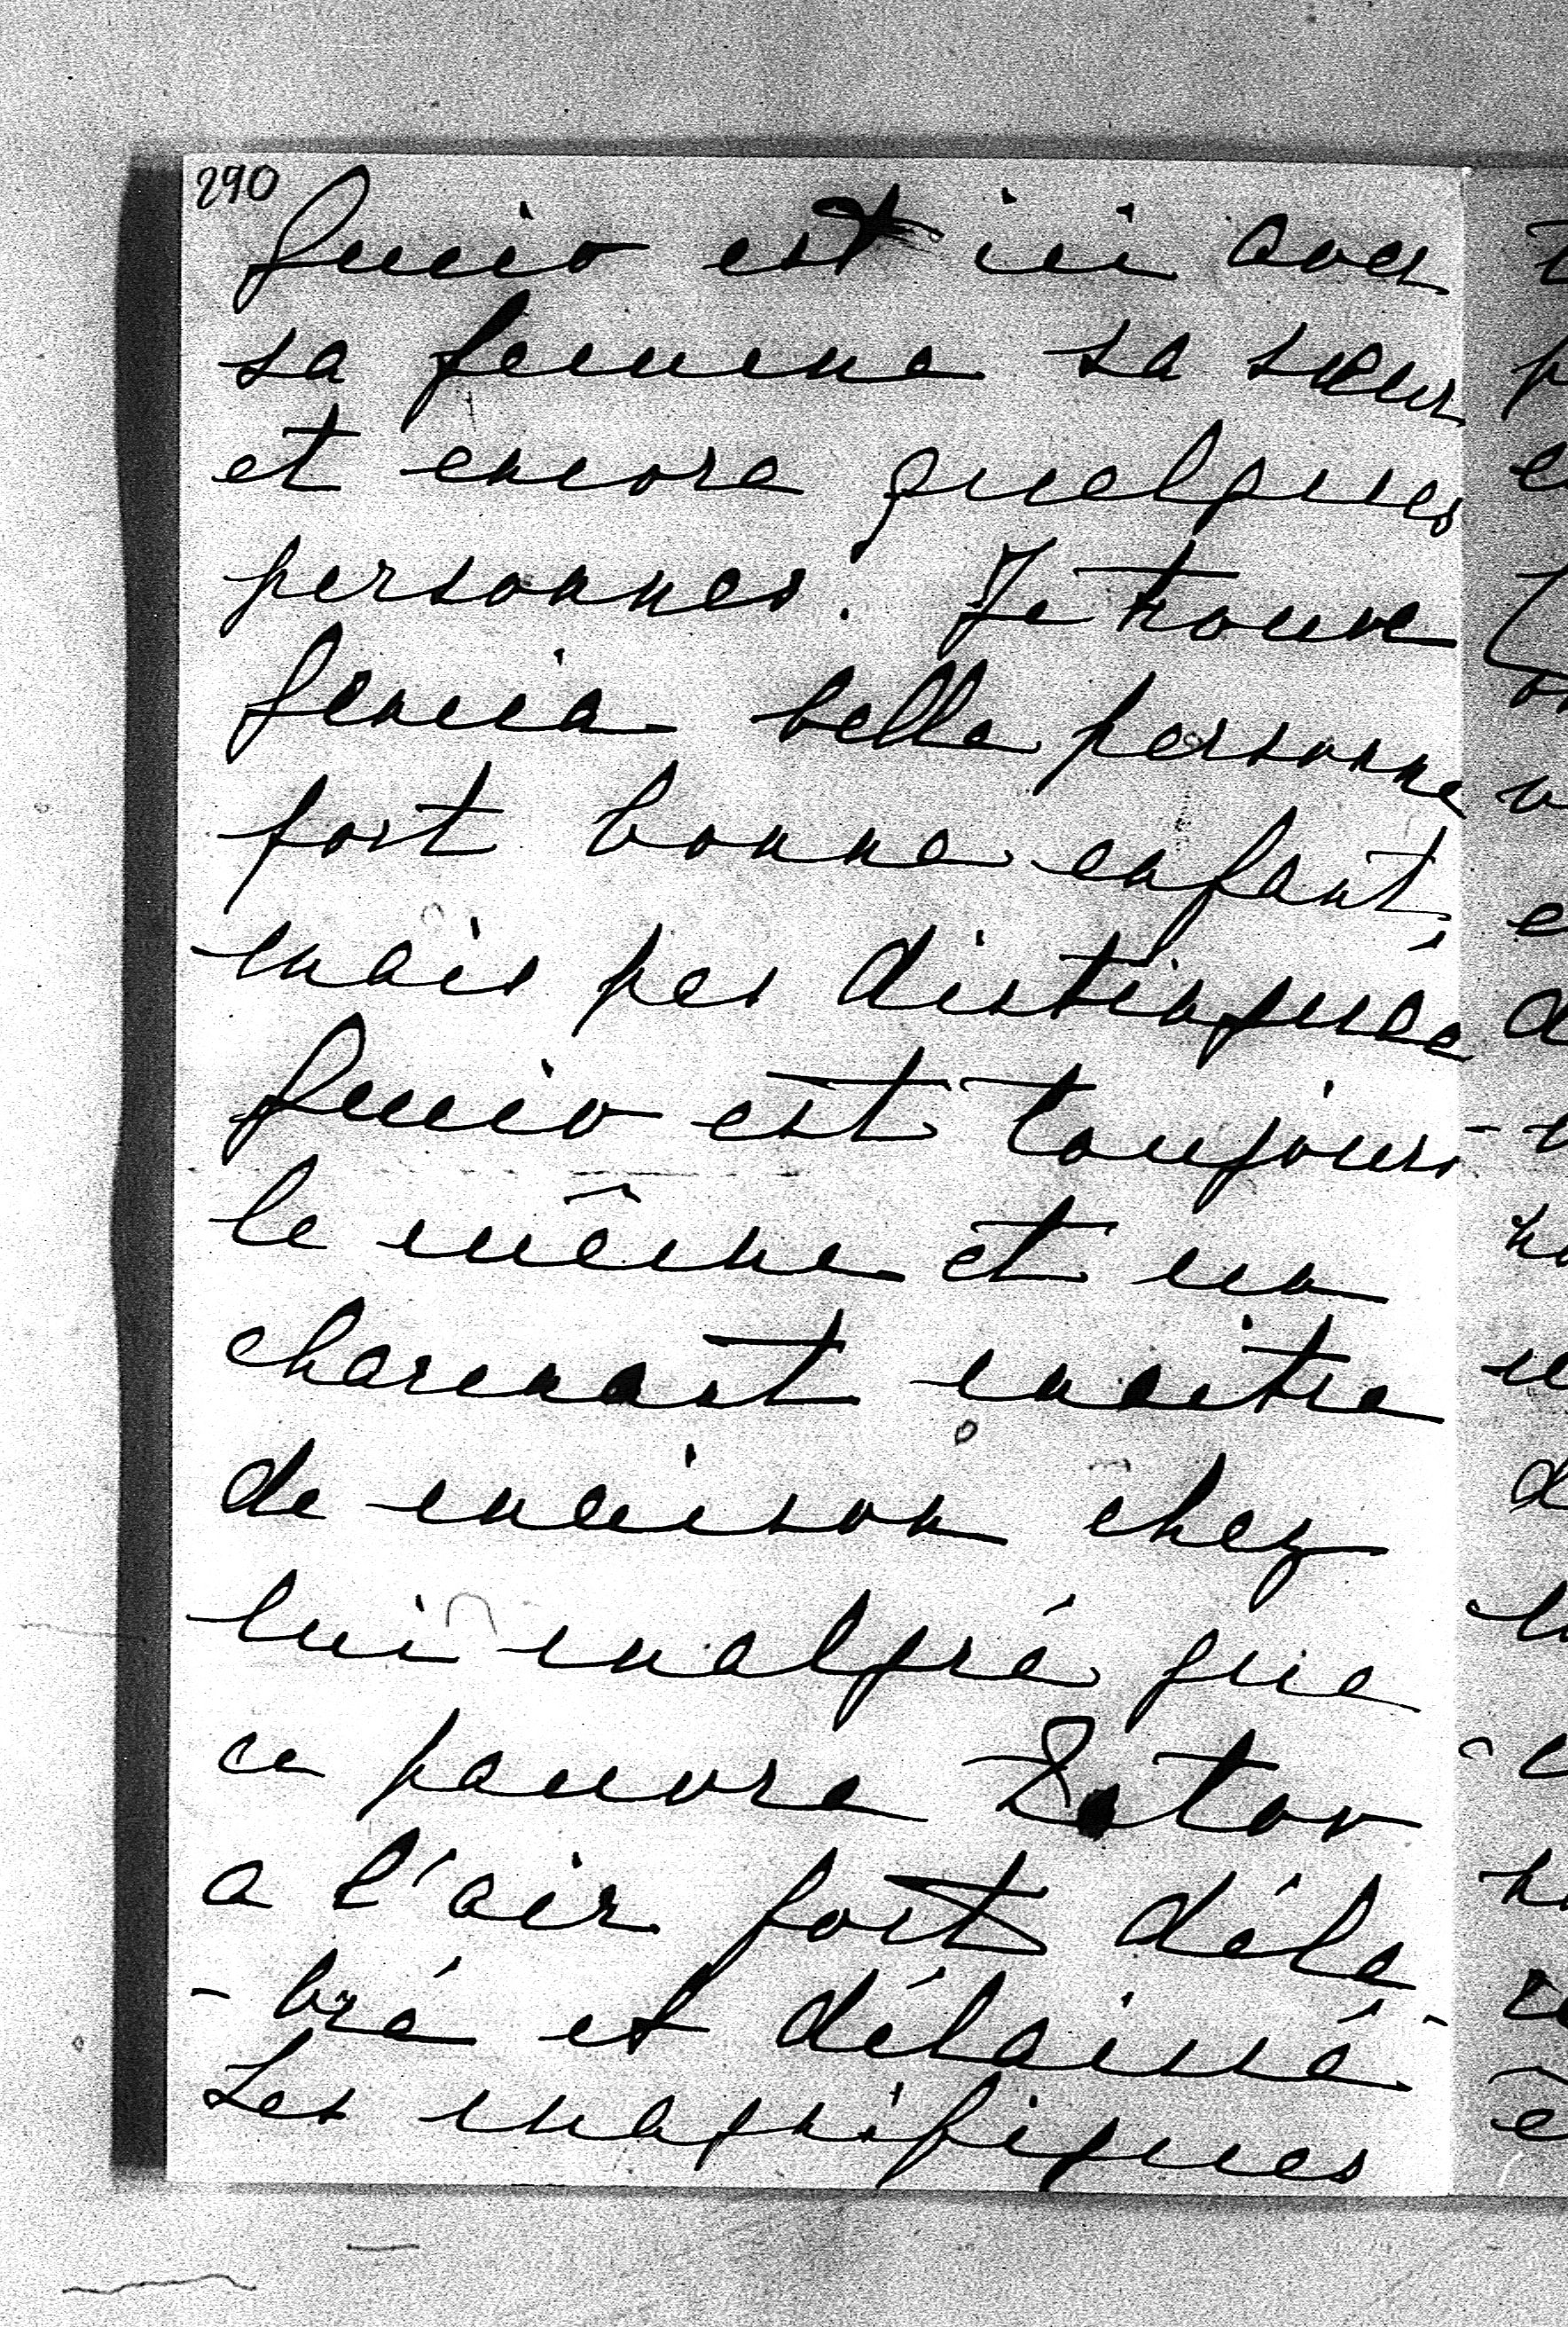 290
Jucio est ici avec
sa femme sa sœur
et encore quelques
personnes. Je trouve
belle personne
fort bonne enfant
mais pas distinguée
Jucio est toujours
le même et un
charmant maitre
de maison chez
lui malgré que
ce pauvre Zator
a l'air fort déla
- bré et délaissé -
Les magnifiques